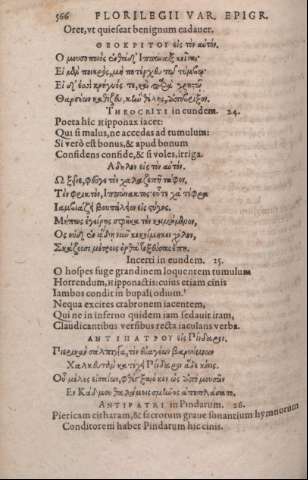 366 FLORILEGII VAR. EPIGR.
Oret, vt quiescat benignum cadauer.
ΘΕΟΚΡΙΤΟΥ εἰς τὸν αὐτόν.
Ὁ μουσοποιὸς ἐνθάδ' Ἱππῶναξ κεῖται·
Εἰ μὲν πονηρὸς, μὴ ποτέρχευ τῷ τύμβῳ·
Εἰ δ' ἐσσὶ κρήγυός τε, καὶ παρὰ χρηστῶν,
Θαρσέων καθίζευ, κἢν θέλῃς, ἀπόβριξον.
THEOCRITI in eundem. 24.
Poeta hic Hipponax iacet:
Qui si malus, ne accedas ad tumulum:
Si verò est bonus, & apud bonum
Confidens conside, & si voles, irriga.
Ἄδηλον εἰς τὸν αὐτόν.
Ὦ ξεῖνε, φεῦγε τὸν χαλαζεπῆ τάφον,
Τὸν φρικτὸν, Ἱππώνακτος· οὗτε χἁ τέφρα
Ἰαμβιάζει βουπάλειον εἰς στύγος.
Μήπως ἐγείρῃς σφῆκα τὸν κοιμώμενον,
Ὃς οὐδ' ἐν ᾅδῃ νῦν κεκοίμικεν χόλον,
Σκάζουσι μέτροις ὀρθὰ τοξεύσας ἔπη.
Incerti in eundem. 25.
O hospes fuge grandinem loquentem tumulum
Horrendum, Hipponactis: cuius etiam cinis
Iambos condit in bupali odium.
Nequa excites crabronem iacentem,
Qui ne in inferno quidem iam sedauit iram,
Claudicantibus versibus recta iaculans verba.
ΑΝΤΙΠΑΤΡΟΥ εἰς Πίνδαρον.
Πιερικὰν σάλπιγγα, τὸν εὐαγέων βαρὺν ὕμνων
Χαλκευτὰν κατέχει Πίνδαρον ἅδε κόνις.
Οὗ μέλος εἰσαΐων, φθέγξαιό κεν ὡς ἀπὸ μουσῶν
Ἐν Κάδμου θαλάμοις σμῆνος ἀπεπλάσατο.
ANTIPATRI in Pindarum. 26.
Piericam citharam, & sacrorum graue sonantium hymnorum
Conditorem habet Pindarum hic cinis.